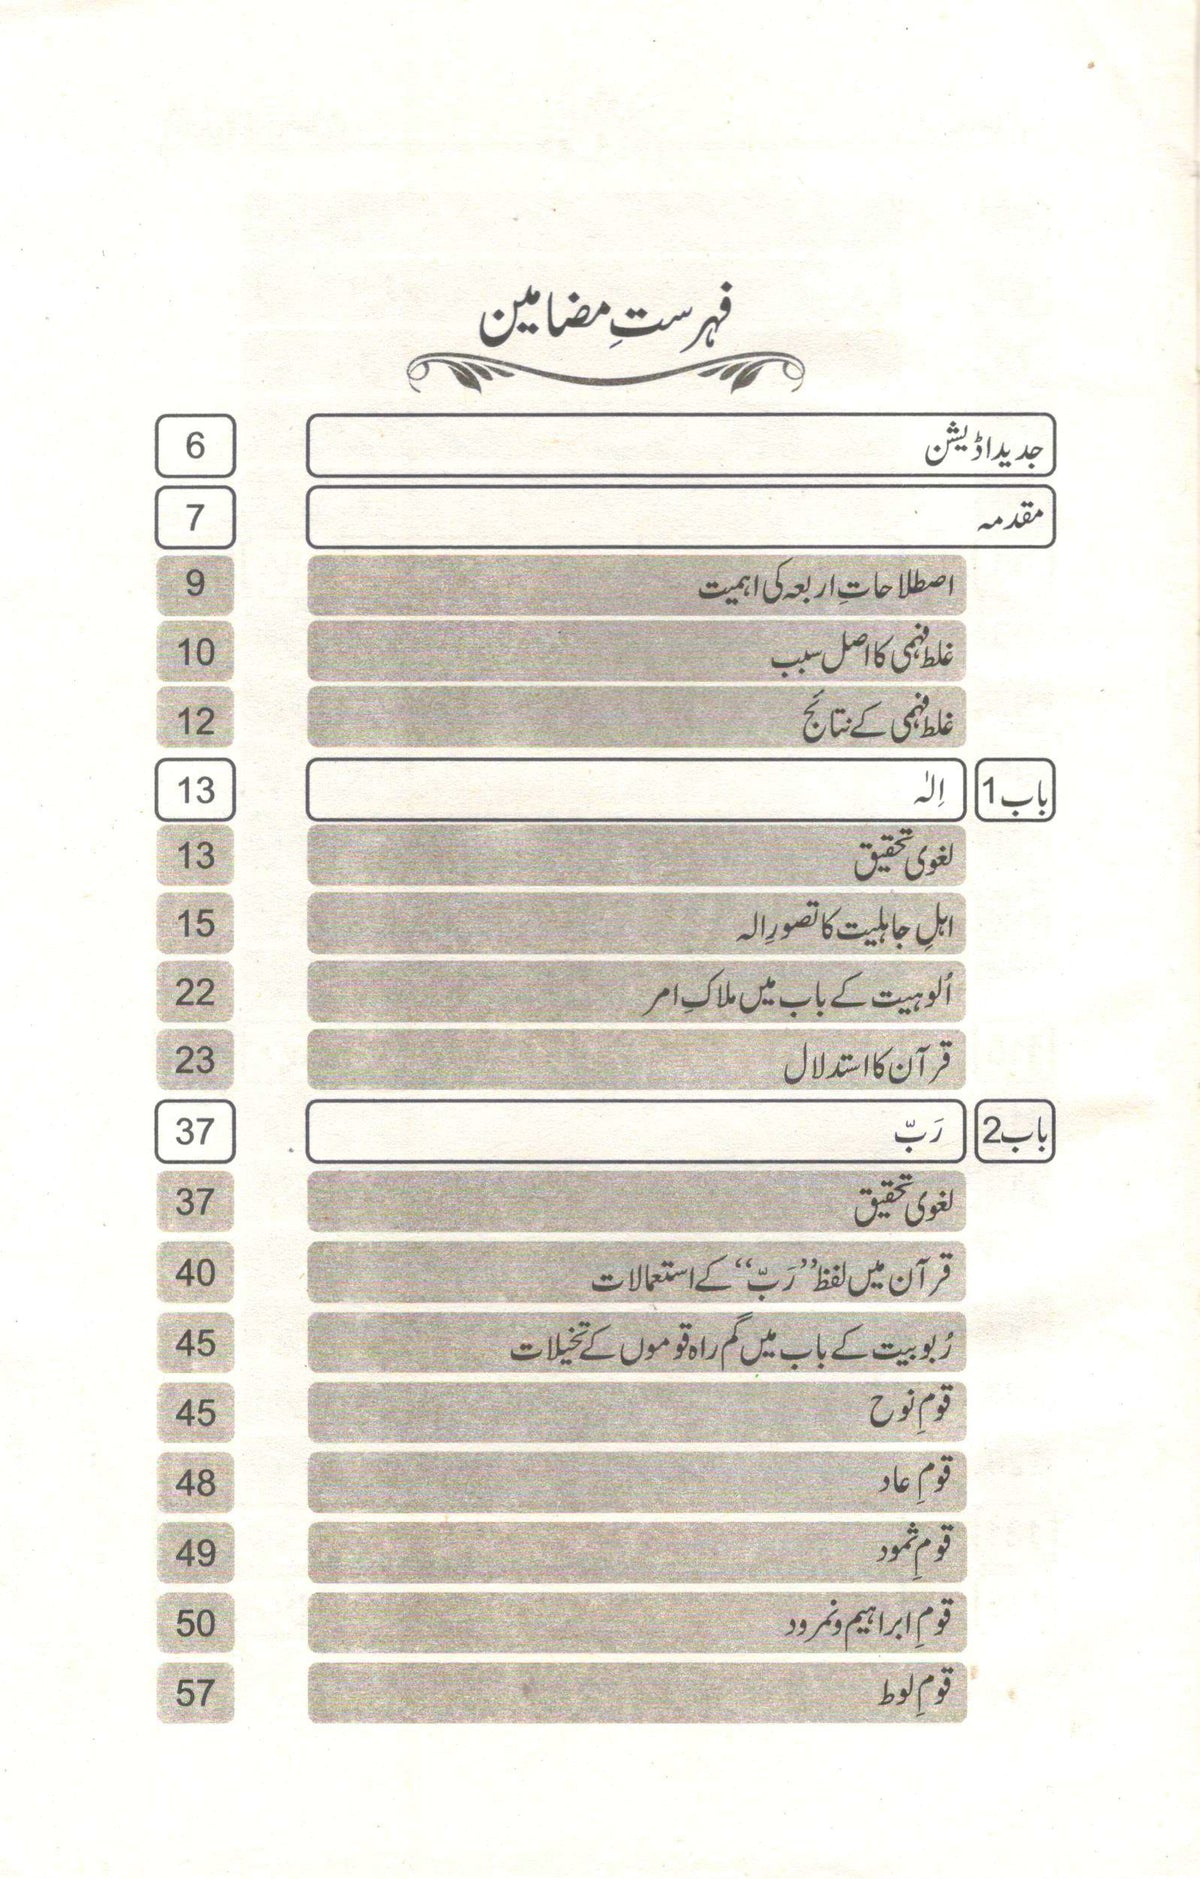 فہرستِ مضامین
جدید اڈیشن 6
مقدمہ 7
اصطلاحاتِ اربعہ کی اہمیت 9
غلط فہمی کا اصل سبب 10
غلط فہمی کے نتائج 12
باب 1 اِلٰہ 13
لغوی تحقیق 13
اہلِ جاہلیت کا تصورِ الہ 15
اُلوہیت کے باب میں ملاکِ امر 22
قرآن کا استدلال 23
باب 2 رَبّ 37
لغوی تحقیق 37
قرآن میں لفظ ”رَبّ“ کے استعمالات 40
رُبوبیت کے باب میں گم راہ قوموں کے تخیلات 45
قومِ نوح 45
قومِ عاد 48
قومِ ثمود 49
قومِ ابراہیم و نمرود 50
قومِ لوط 57